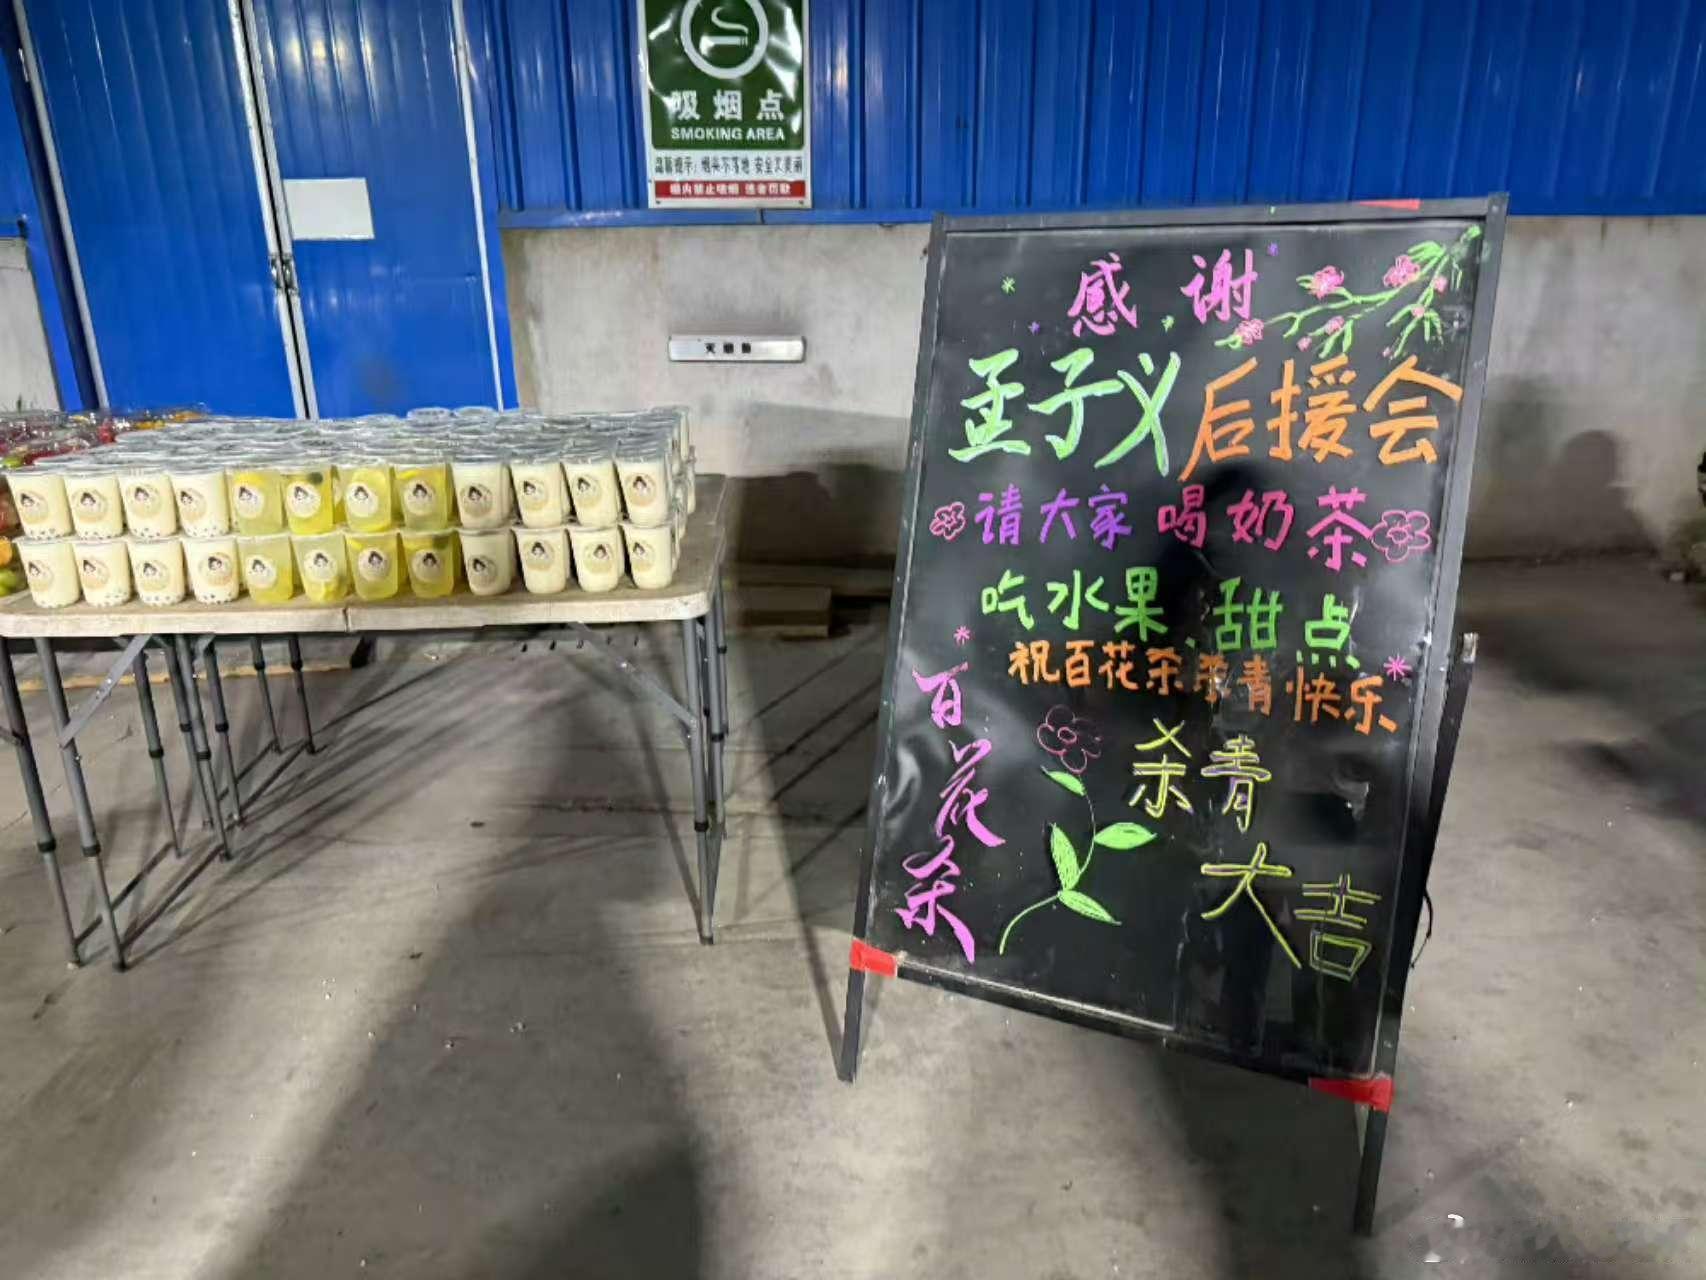 吸烟点
SMOKING AREA
温馨提示：烟头不落地 安全又美丽
感谢
孟子义后援会
请大家喝奶茶
吃水果、甜点
祝百花杀杀青快乐
百花杀
杀青
大吉